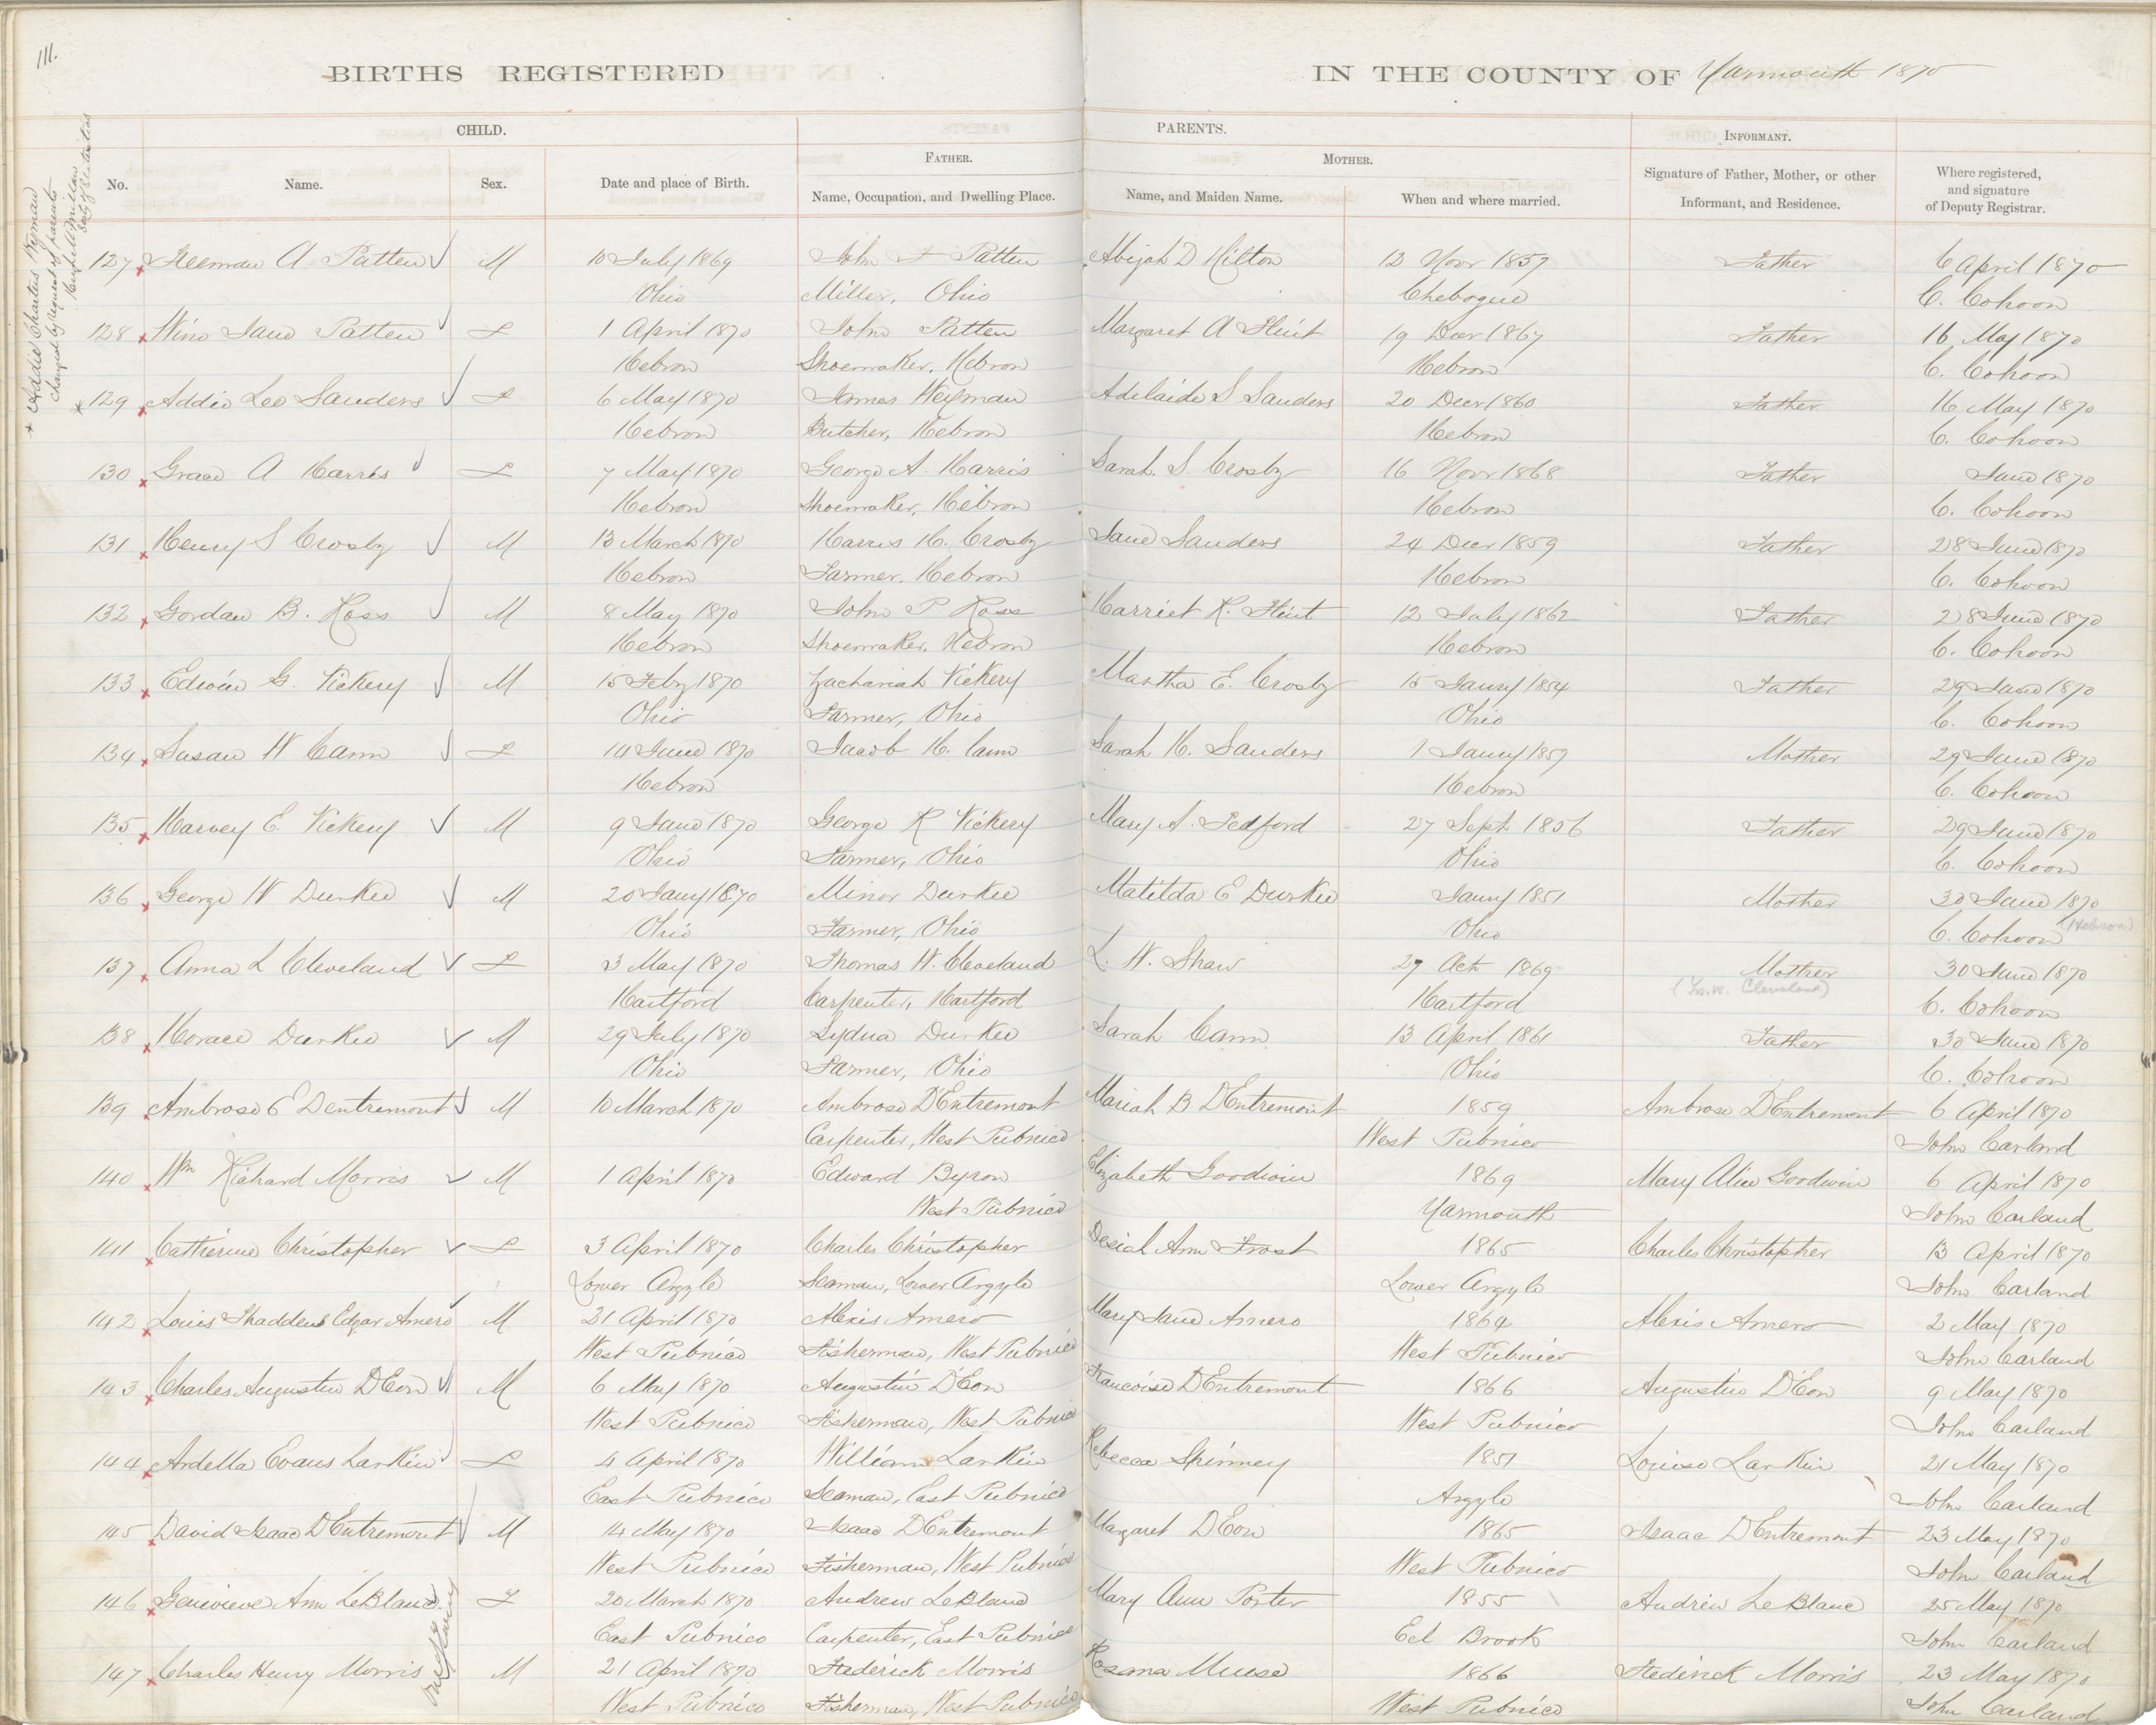 111.
BIRTHS REGISTERED IN THE COUNTY OF Yarmouth 1870
CHILD. PARENTS. INFORMANT.
FATHER. MOTHER.
No. Name. Sex. Date and place of Birth. Name, Occupation, and Dwelling Place. Name, and Maiden Name. When and where married. Signature of Father, Mother, or other Informant, and Residence. Where registered, and signature of Deputy Registrar.
* Addie Charters Wyman
changed by request of parents
127 Heeman A Patten M 10 July 1869 John Patten Abijah D Hilton 12 Novr 1857 Father 6 April 1870
Ohio Miller, Ohio Chebogue C. Cohoon
128 Jane Patten F 1 April 1870 John Patten Margaret A Flint 19 Decr 1867 Father 16 May 1870
Hebron Shoemaker, Hebron Hebron C. Cohoon
* 129 Addie Lee Sanders F 6 May 1870 James Wyman Adelaide S Sanders 20 Decr 1860 Father 16 May 1870
Hebron Butcher, Hebron Hebron C. Cohoon
130 Grace A Harris F 7 May 1870 George A. Harris Sarah S. Crosby 16 Novr 1868 Father June 1870
Hebron Shoemaker, Hebron Hebron C. Cohoon
131 Henry S Crosby M 13 March 1870 Harris H. Crosby Jane Sanders 24 Decr 1859 Father 28 June 1870
Hebron Farmer, Hebron Hebron C. Cohoon
132 Gordan B. Ross M 8 May 1870 John P Ross Harriet R. Flint 12 July 1862 Father 28 June 1870
Hebron Shoemaker, Hebron Hebron C. Cohoon
133 Edwin G. Vickery M 15 Feby 1870 Zachariah Vickery Martha E. Crosby 15 Jany 1854 Father 29 June 1870
Ohio Farmer, Ohio Ohio C. Cohoon
134 Susan W. Cann F 14 June 1870 Jacob H. Cann Sarah H. Sanders 1 Jany 1857 Mother 29 June 1870
Hebron Hebron C. Cohoon
135 Harvey E. Vickery M 9 June 1870 George R Vickery Mary A. Tedford 27 Sept 1856 Father 29 June 1870
Ohio Farmer, Ohio Ohio C. Cohoon
136 George W Durkee M 20 Jany 1870 Minor Durkee Matilda E Durkee Jany 1851 Mother 30 June 1870
Ohio Farmer, Ohio Ohio C. Cohoon (Hebron)
137 Anna L Cleveland F 3 May 1870 Thomas W. Cleveland L. W. Shaw 27 Oct 1869 Mother 30 June 1870
Hartford Carpenter, Hartford Hartford C. Cohoon
138 Horace Durkee M 29 July 1870 Lydua Durkee Sarah Cann 13 April 1861 Father 30 June 1870
Ohio Farmer, Ohio Ohio C. Cohoon
139 Ambrose E Dentremont M 10 March 1870 Ambrose D'Entremont Mariah B DEntremont 1859 Ambrose DEntremont 6 April 1870
Carpenter, West Pubnico West Pubnico John Carland
140 Wm Richard Morris M 1 April 1870 Edward Byron Elizabeth Goodwin 1869 Mary Alice Goodwin 6 April 1870
West Pubnico Yarmouth John Carland
141 Catherine Christopher F 3 April 1870 Charles Christopher Desiah Ann Frost 1865 Charles Christopher 13 April 1870
Lower Argyle Seaman, Lower Argyle Lower Argyle John Carland
142 Louis Thaddeus Edgar Amero M 21 April 1870 Alexis Amero Mary Jane Amero 1864 Alexis Amero 2 May 1870
West Pubnico Fisherman, West Pubnico West Pubnico John Carland
143 Charles Augustin DEon M 6 May 1870 Augustin D'Eon Francoise DEntremont 1866 Augustin D'Eon 9 May 1870
West Pubnico Fisherman, West Pubnico West Pubnico John Carland
144 Ardella Evans Larkin F 4 April 1870 William Larkin Rebecca Spinney 1851 Louise Larkin 21 May 1870
East Pubnico Seaman, East Pubnico Argyle John Carland
145 David Isaac DEntremont M 14 May 1870 Isaac DEntremont Margaret DEon 1865 Isaac DEntremont 23 May 1870
West Pubnico Fisherman, West Pubnico West Pubnico John Carland
146 Genevieve Ann LeBlanc F 20 March 1870 Andrew LeBlanc Mary Ann Porter 1855 Andrew LeBlanc 25 May 1870
East Pubnico Carpenter, East Pubnico Eel Brook John Carland
147 Charles Henry Morris M 21 April 1870 Frederick Morris Rosana Muise 1866 Frederick Morris 23 May 1870
West Pubnico Fisherman, West Pubnico West Pubnico John Carland